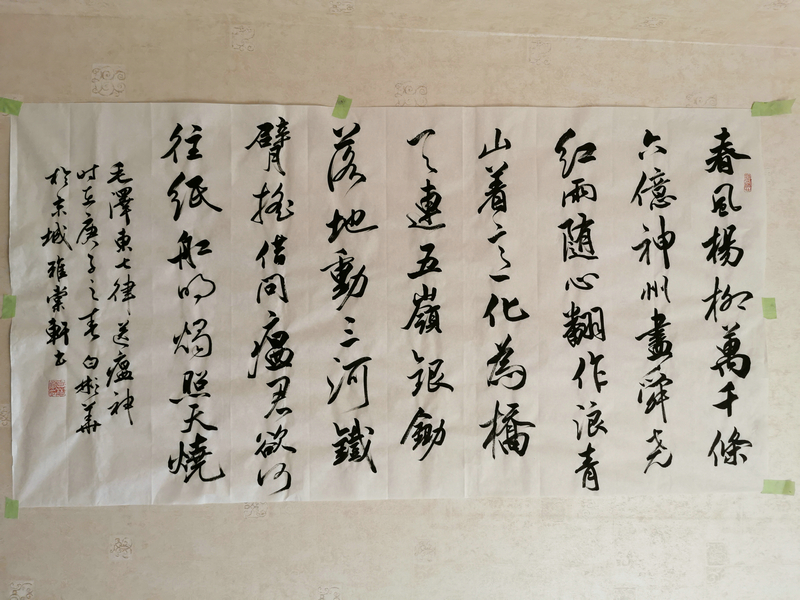 春风楊柳萬千條
六億神州盡舜尧
红雨随心翻作浪青
山着意化為橋
天連五嶺銀鋤
落地動三河鐵
臂搖借问瘟君欲何
往纸船明燭照天燒
毛澤東七律送瘟神
时在庚子之春白彬華
於京城雅棠軒书